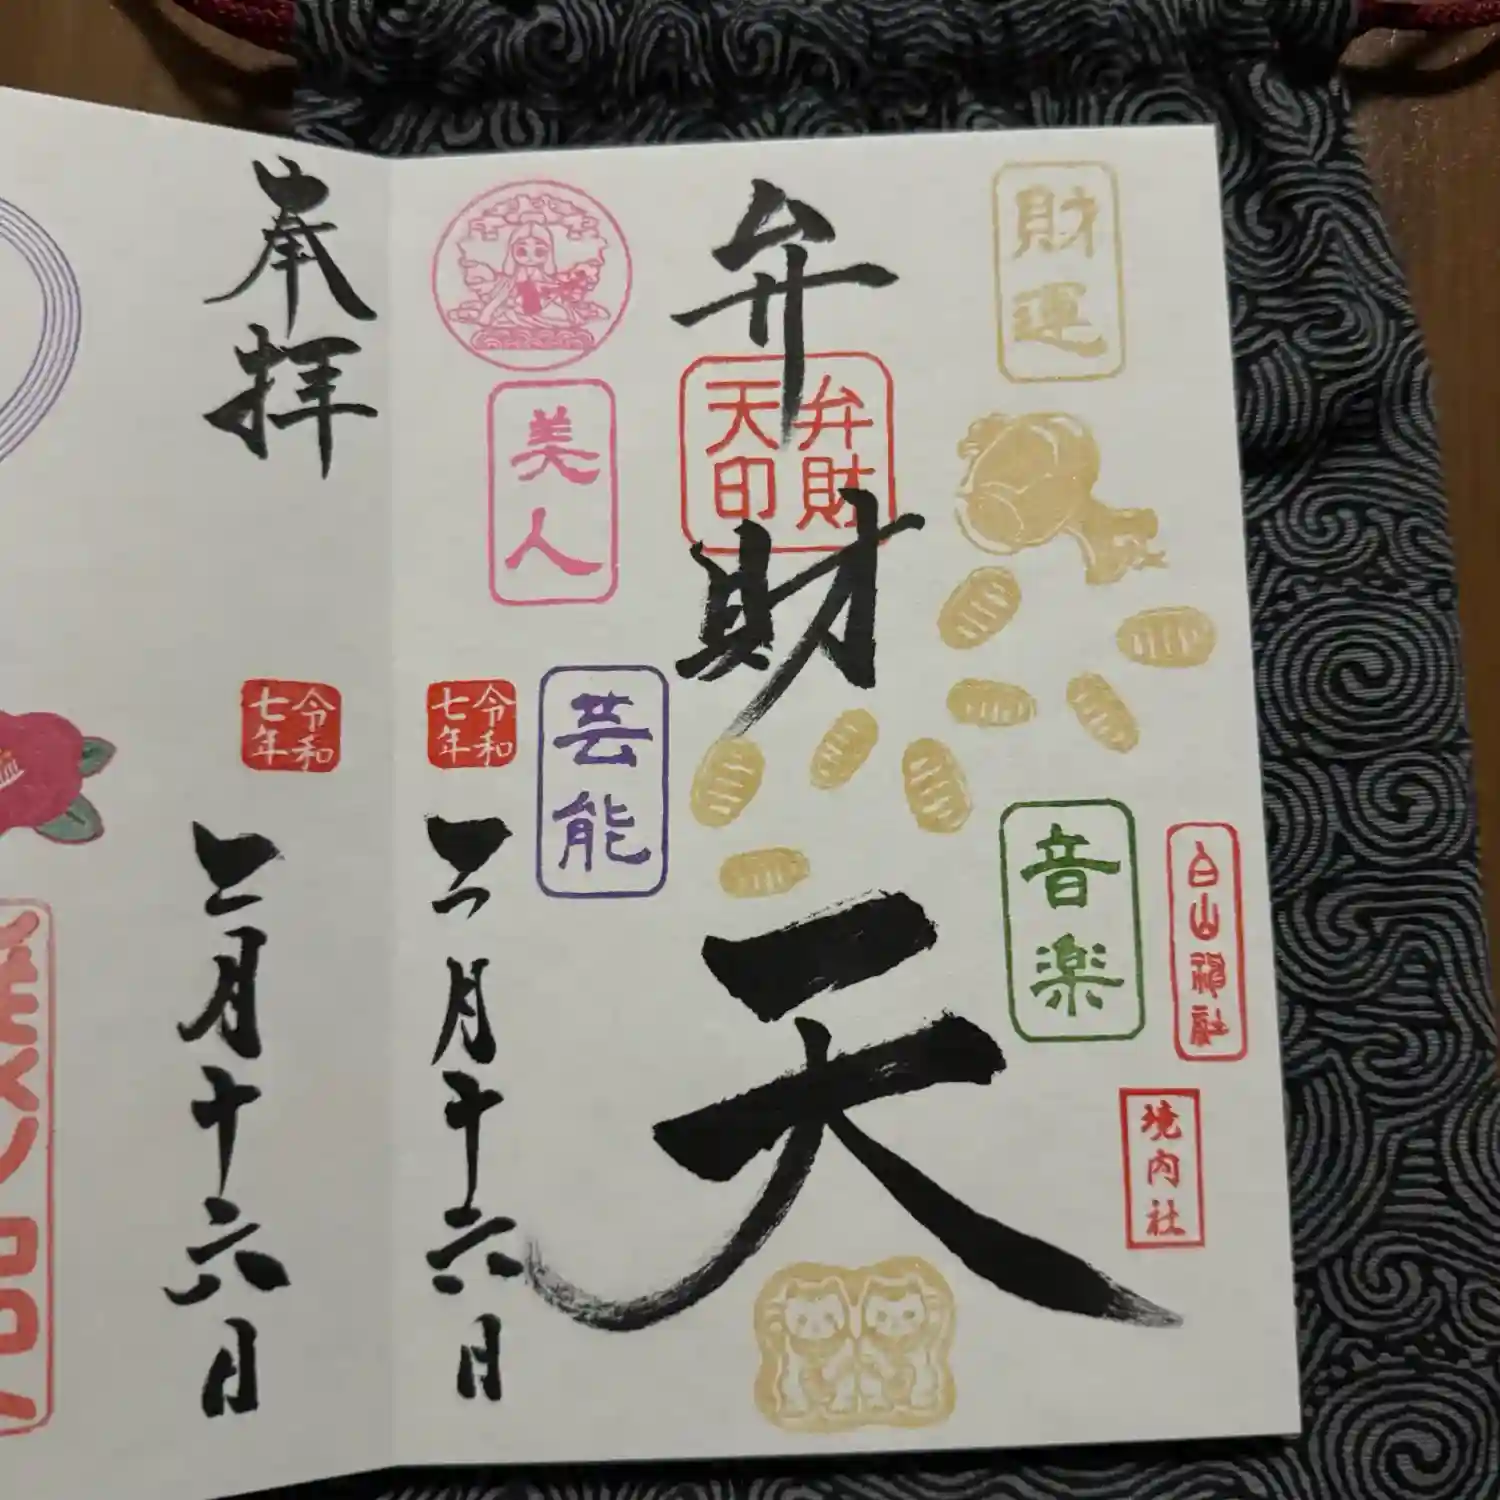 財運
弁財天
弁財
天印
音楽
白山神社
境内社
美人
芸能
令和
七年
二月十六日
奉拝
令和
七年
二月十六日